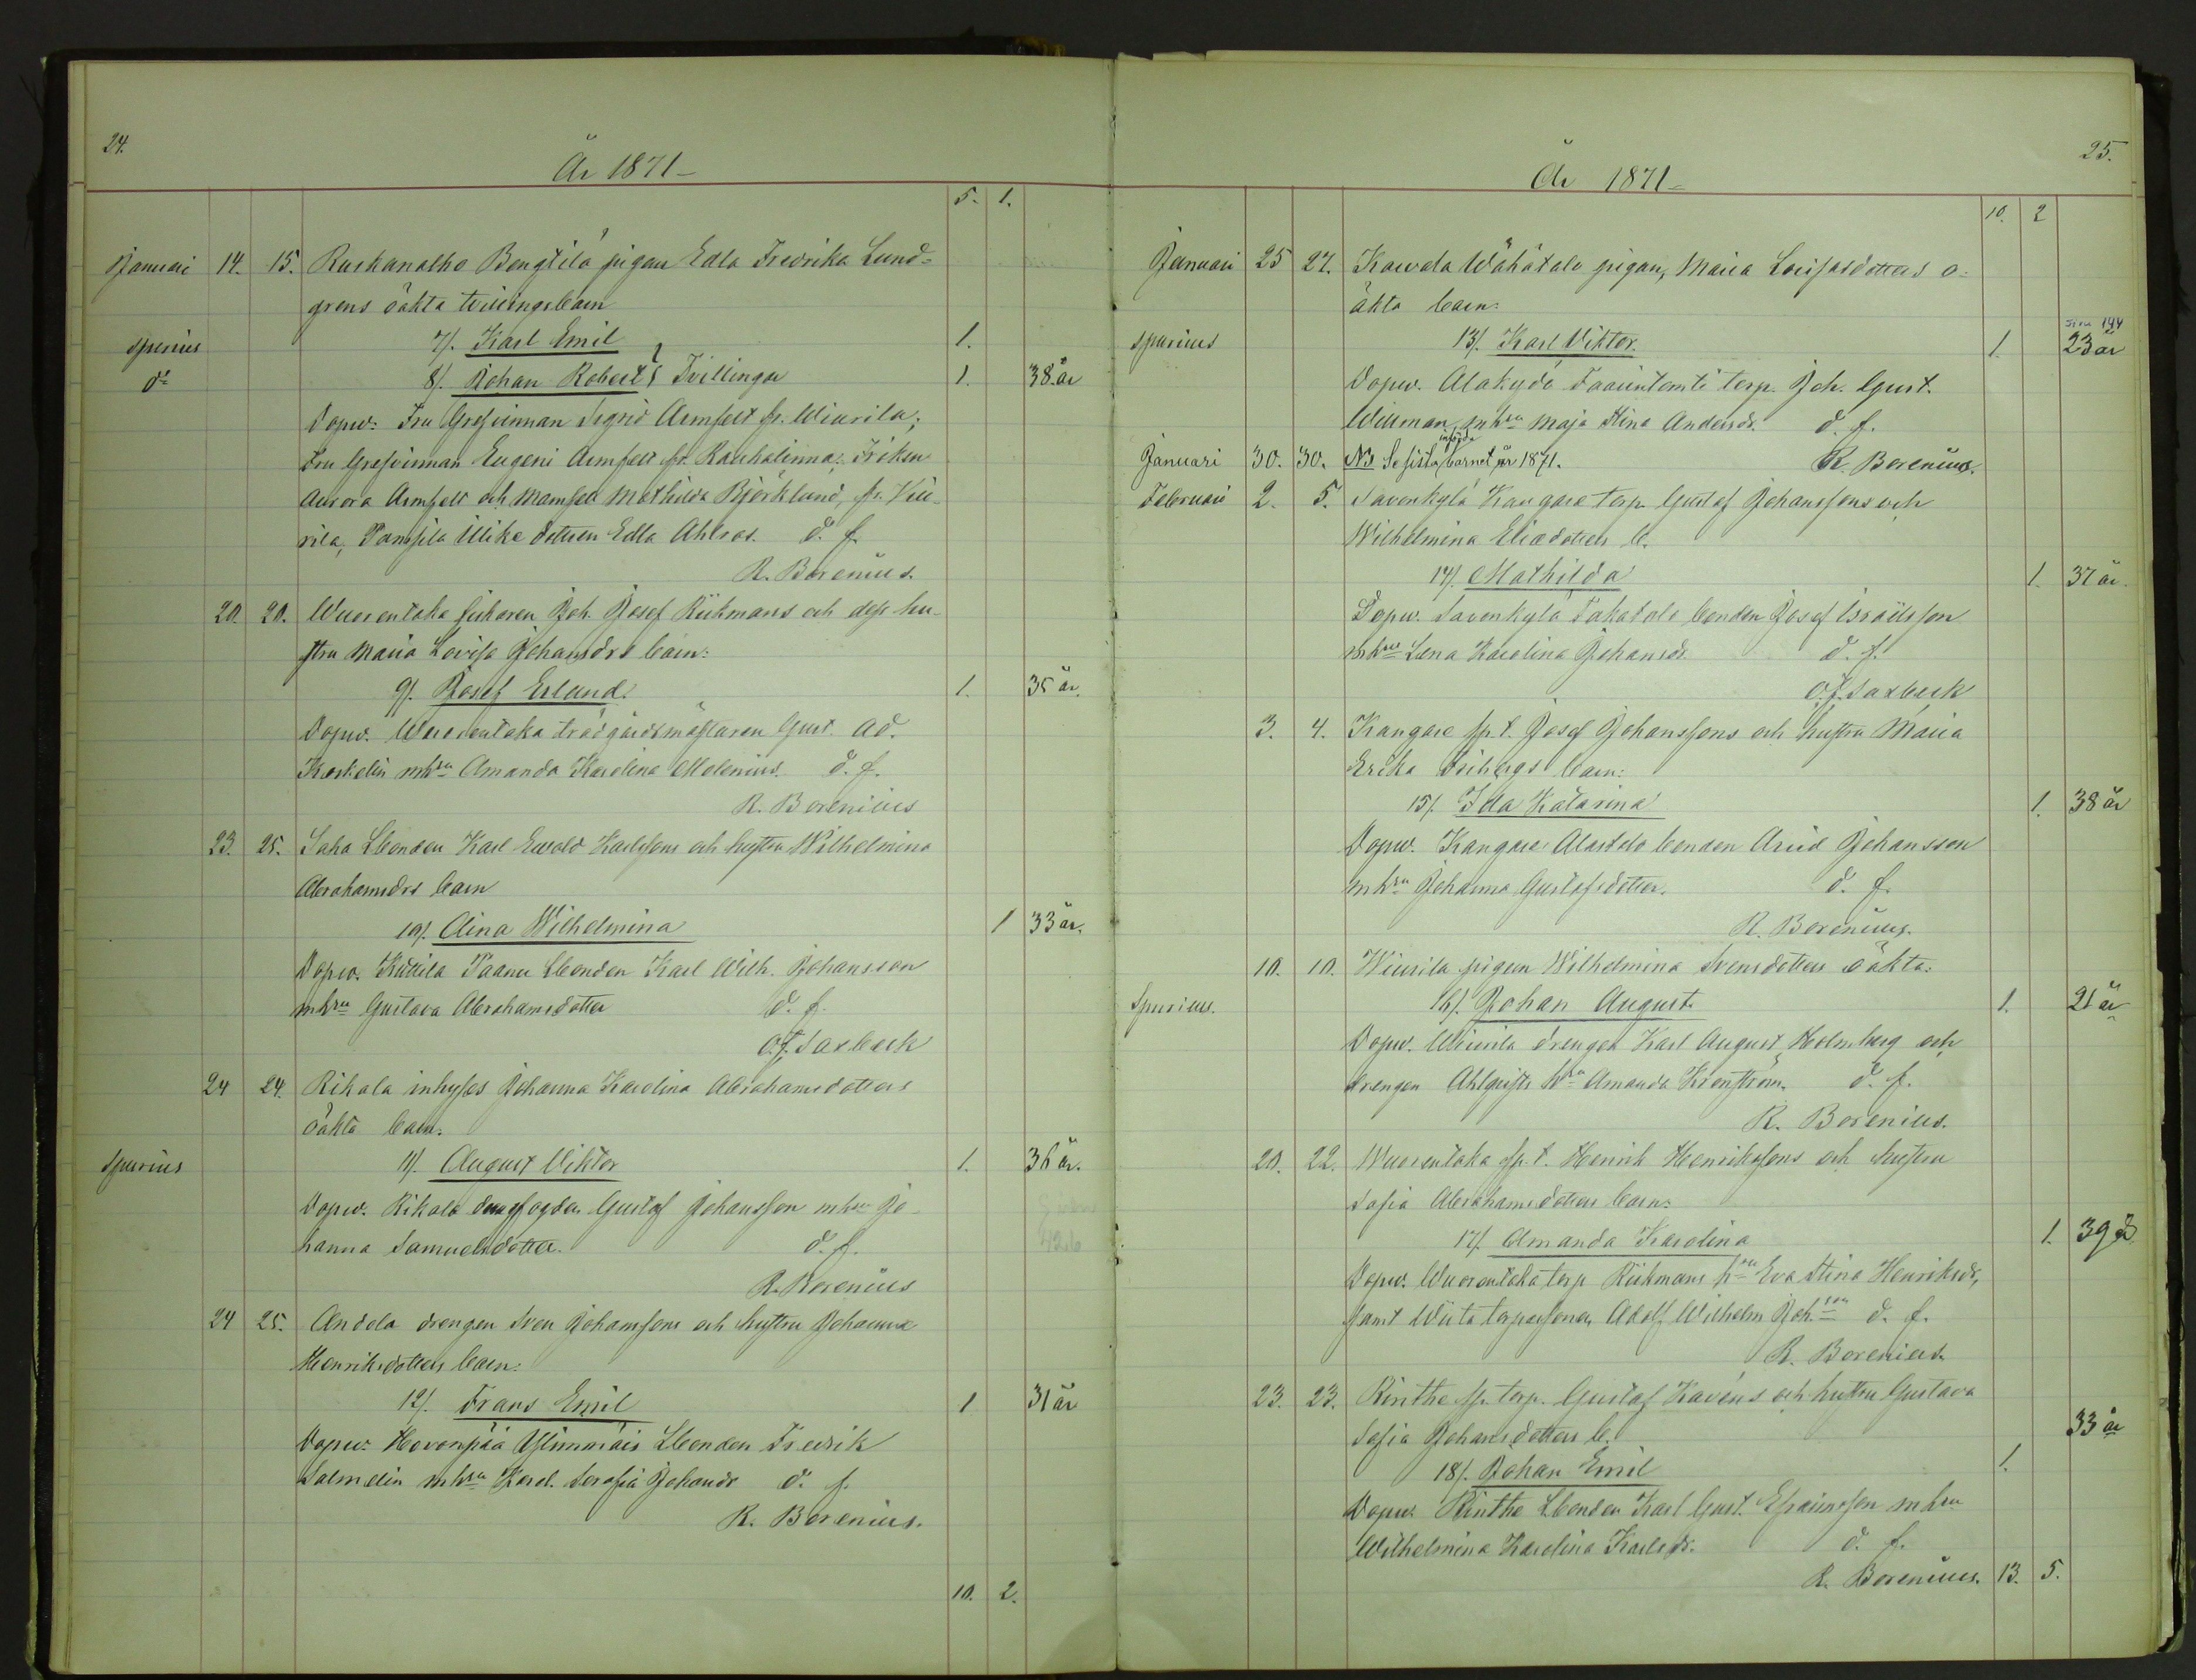 24.
År 1871 –
5. 1.
Januari 14. 15. Ruskanalho Bengtilä pigan Edla Fredrika Lund-
grens oäkta tvillingebarn
spurius 7/. Karl Emil 1.
d:o 8/. Johan Robert } Tvillingar 1. 38 år
Dopw: Fru Grefvinnan Sigrid Armfelt fr. Wiurila;
Fru Grefvinnan Eugeni Armfelt fr. Rauhalinna; Fröken
Aurora Armfelt och Mamsell Mathilda Björklund, fr. Viu-
rila, Ulike dottren Edla Ahlros. d. f.
R. Borenius.
20. 20. Wuorentaka Joh. Josef Riihmans och dess hu-
stru Maria Lovisa Johansdrs barn:
9/. Josef Erland. 1. 35 år.
Dopw. Wuorentaka trädgårdsmästaren Gust. Ad.
Koskelin mhru Amanda Karolina Molenius. d. f.
R. Borenius
23. 25. Saha Lbonden Karl Ewald Karlssons och hustru Wilhelmina
Abrahamsdrs barn
10/. Alina Wilhelmina 1 33 år.
Dopw. Kukila Paanu Lbonden Karl Wilh. Johansson
mhru Gustava Abrahamsdotter d. f.
O. F. Saxbeck
24 24. Rikala inhyses Johanna Karolina Abrahamsdotters
oäkta barn.
spurius 11/. August Viktor 1. 36 år.
Dopw. Rikala drengfogden Gustaf Johansson mhru Jo-
hanna Samuelsdotter. d. f.
R. Borenius
24 25. Andela drengen Sven Johanssons och hustru Johanna
Henriksdotters barn:
12/. Frans Emil 1 31 år
Dopw: Hovonpää Ylimmäis Lbonden Fredrik
Salmelin mhru Karol. Serafia Johansdr d. f.
R. Borenius.
10. 2.
25.
År 1871 –
10. 2
Januari 25 27. Kavala Wähätalo pigan, Maria Lovisasdotters o-
äkta barn:
spurius 13/. Karl Viktor. 1. 23 år
Dopw. Alakylä torp. Joh. Gust.
Willman, mhru Maja Stina Andersdr. d. f.
Januari 30. 30. NB Se sista införda barnet år 1871. R. Borenius.
Februari 2. 5. Savenkylä Kangare torp. Gustaf Johanssons och
Wilhelmina Eliædotters b.
14/. Mathilda 1. 37 år.
Dopw. Savenkylä Takatalo bonden Josef Israëlsson
mhru Lena Karolina Johansdr. d. f.
O. F. Saxbeck
3. 4. Kangare sp. t. Josef Johanssons och hustru Maria
Erika Fribergs barn:
15/. Ida Katarina 1. 38 år
Dopw. Kangare Alastalo bonden Arvid Johansson
mhru Johanna Gustafsdotter. d. f.
R. Borenius.
10. 10. Wiurila pigan Wilhelmina Svensdotters oäkta:
Spurius. 16/. Johan August. 1. 21 år
Dopw. Wiurila drengen Karl August Holmberg och
drengen Ahlqvists hru Amanda Kronström. d. f.
R. Borenius.
20. 22. Wuorentaka sp. t. Henrik Henrikssons och hustru
Sofia Abrahamsdotters barn:
17/. Amanda Karolina 1. 39 år
Dopw. Wuorentaka torp Riihmans hru Eva Stina Henriksdr,
samt Wiita torparsonen Adolf Wilhelm Joh:son d. f.
R. Borenius.
23. 23. Rinthe sp. torp. Gustaf Kavéns och hustru Gustava
Sofia Johansdotters b. 33 år
18/. Johan Emil 1.
Dopw. Rinthe Lbonden Karl Gust. Efraimsson mhru
Wilhelmina Karolina Karlsdr. d. f.
R. Borenius. 13. 5.